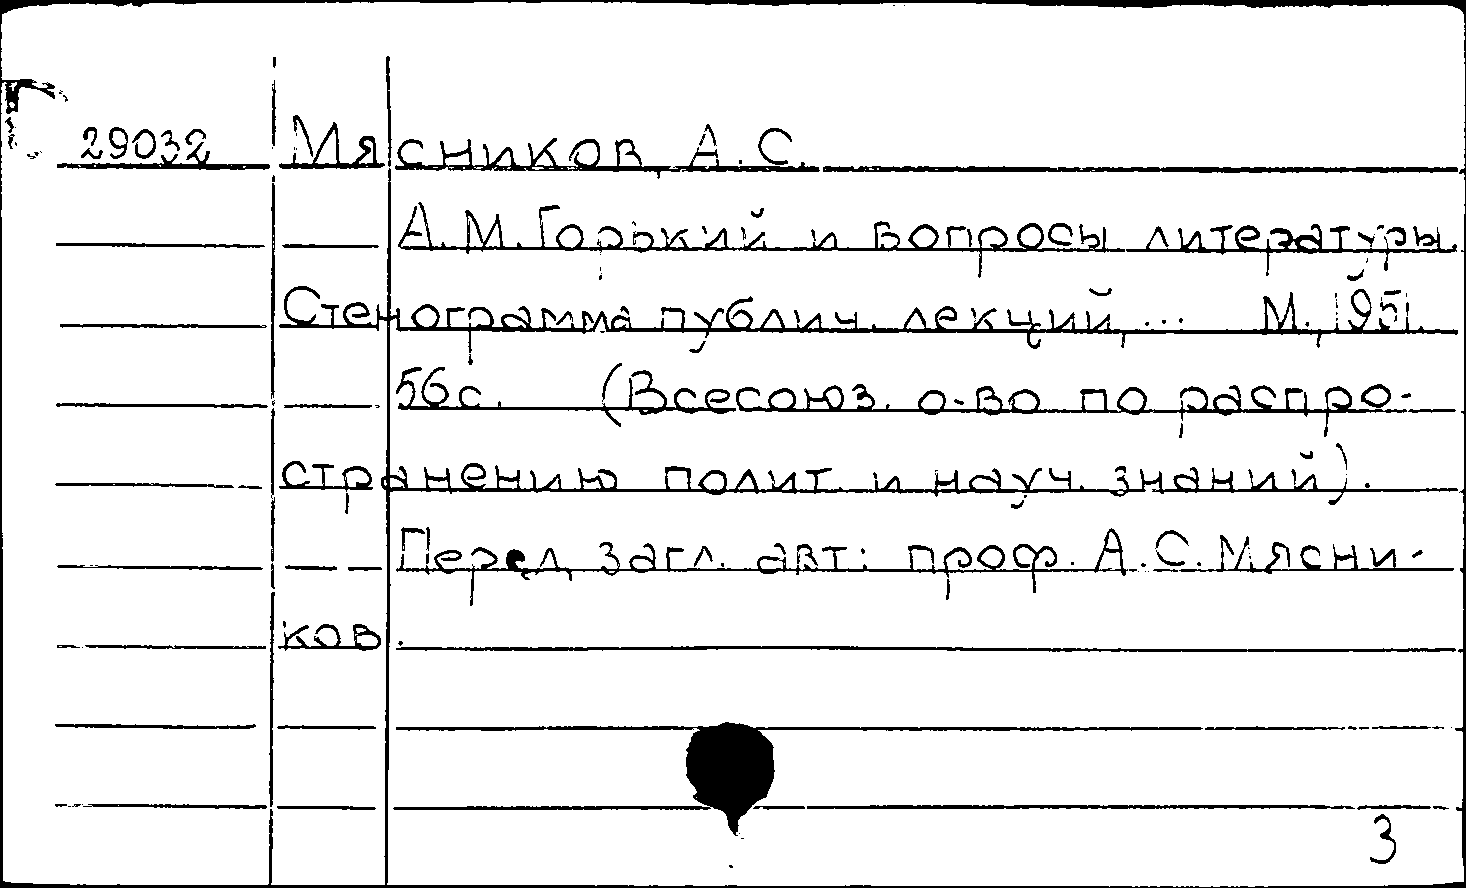 29032 Мясников, А.С.
А.М.Горький и вопросы литературы.
Стенограмма публич. лекций,... М., 1951.
56с. (Всесоюз. о-во по распро-
странению полит. и науч. знаний).
Перед загл. авт: проф. А.С.Мясни-
ков.
3